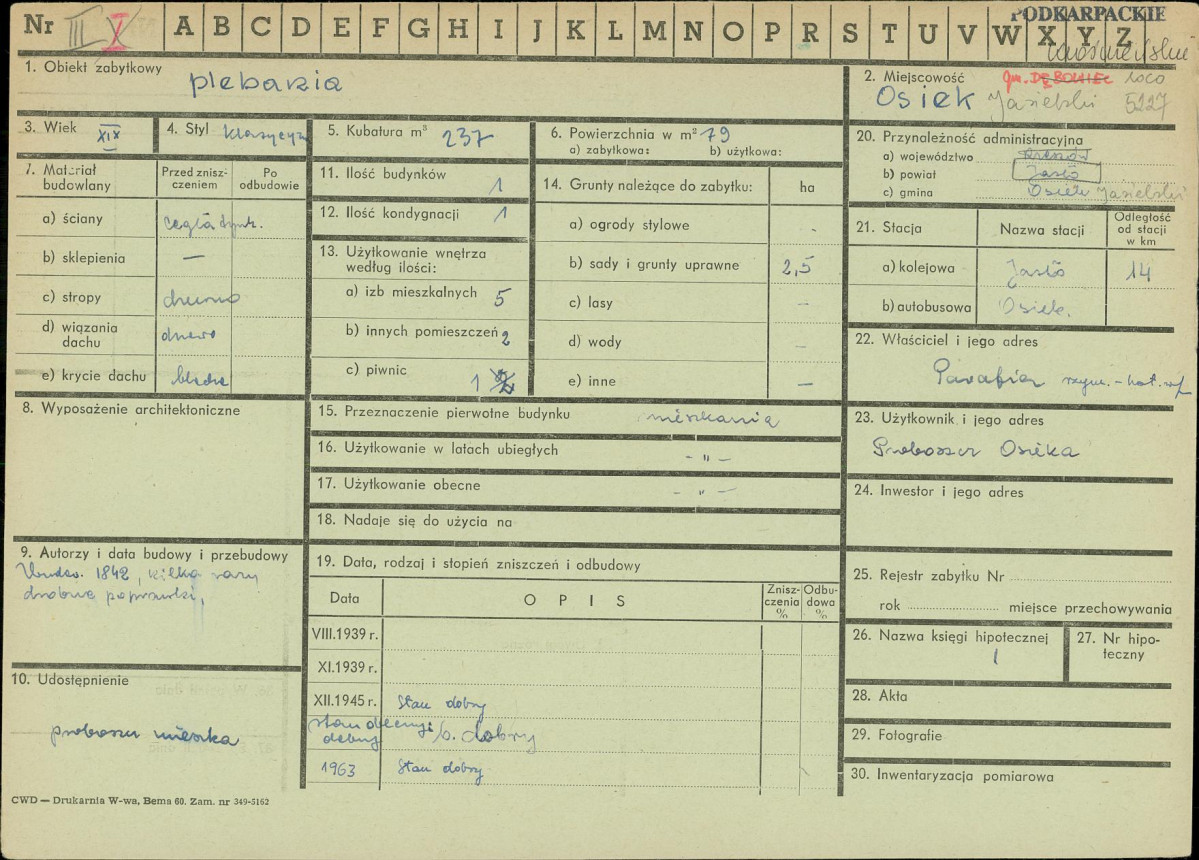 Nr III X A B C D E F G H I J K L M N O P R S T U V W X Y Z
PODKARPACKIE
1. Obiekt zabytkowy plebania
2. Miejscowość gm. DĘBOWIEC loco
Osiek Jasielski 5227
3. Wiek XIX
4. Styl klasycyzm
5. Kubatura m³ 237
6. Powierzchnia w m² 79
a) zabytkowa: b) użytkowa:
7. Materiał budowlany
Przed zniszczeniem
Po odbudowie
a) ściany cegła tynk.
b) sklepienia —
c) stropy drewno
d) wiązania dachu drewno
e) krycie dachu blacha
8. Wyposażenie architektoniczne
9. Autorzy i data budowy i przebudowy
Wybud. 1842, kilka razy
drobne poprawki,
10. Udostępnienie
proboszcz mieszka
11. Ilość budynków 1
12. Ilość kondygnacji 1
13. Użytkowanie wnętrza
według ilości:
a) izb mieszkalnych 5
b) innych pomieszczeń 2
c) piwnic 1
14. Grunty należące do zabytku: ha
a) ogrody stylowe -
b) sady i grunty uprawne 2,5
c) lasy —
d) wody —
e) inne —
15. Przeznaczenie pierwotne budynku mieszkania
16. Użytkowanie w latach ubiegłych - „ -
17. Użytkowanie obecne - „ -
18. Nadaje się do użycia na
19. Data, rodzaj i stopień zniszczeń i odbudowy
Data OPIS Zniszczenia % Odbudowa %
VIII.1939 r.
XI.1939 r.
XII.1945 r. Stan dobry
stan obecny:
dobry b. dobry
1963 Stan dobry
20. Przynależność administracyjna
a) województwo Rzeszów
b) powiat Jasło
c) gmina Osiek Jasielski
21. Stacja Nazwa stacji Odległość od stacji w km
a) kolejowa Jasło 14
b) autobusowa Osiek.
22. Właściciel i jego adres
Parafia rzym.-kat. w/m
23. Użytkownik i jego adres
Proboszcz Osieka
24. Inwestor i jego adres
25. Rejestr zabytku Nr
rok miejsce przechowywania
26. Nazwa księgi hipotecznej
27. Nr hipoteczny
28. Akta
29. Fotografie
30. Inwentaryzacja pomiarowa
CWD — Drukarnia W-wa, Bema 60. Zam. nr 349-5162